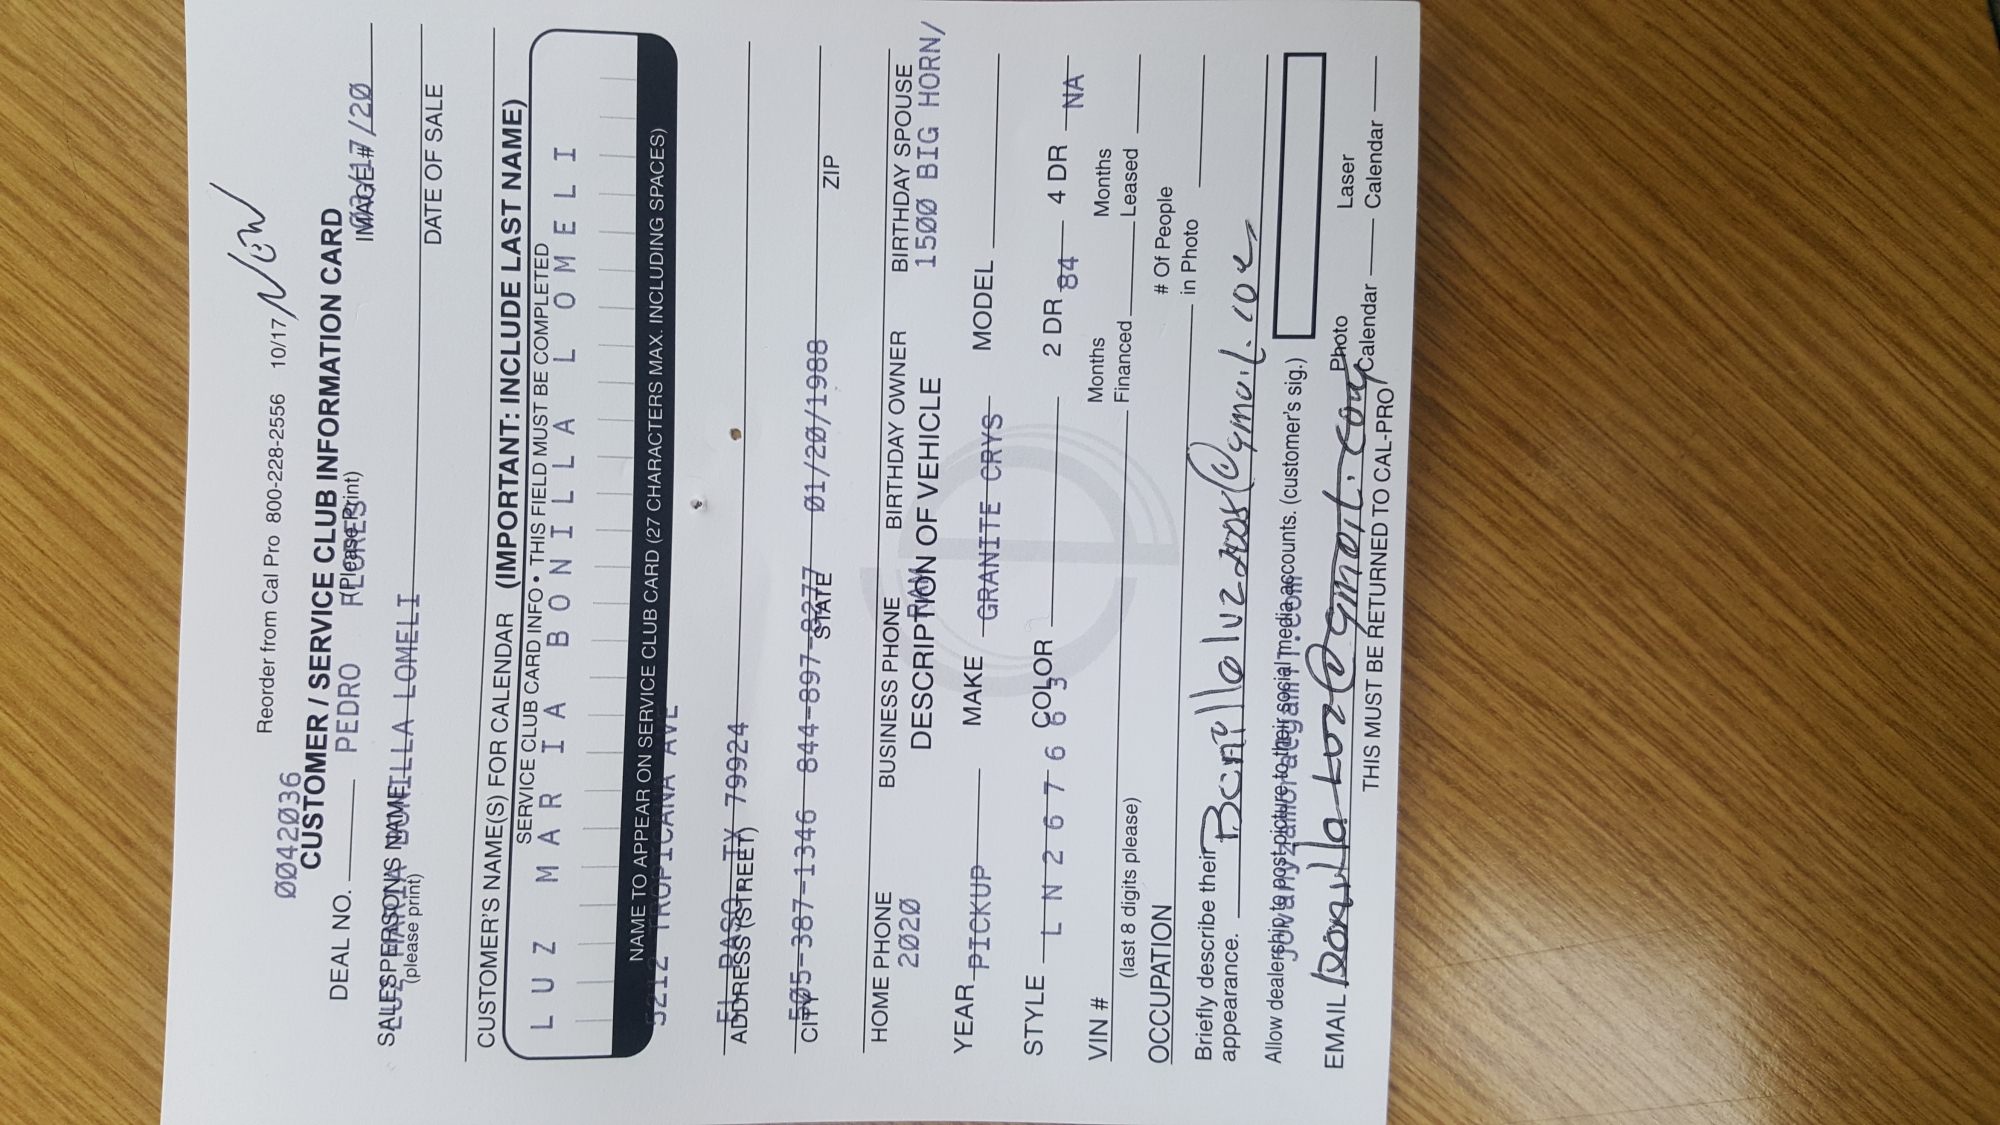 Reorder from Cal Pro 800-228-2556 10/17 NEW
00042036
CUSTOMER / SERVICE CLUB INFORMATION CARD
(Please Print)
DEAL NO. PEDRO FLORES IMAGE# /17/20
SALESPERSON'S NAME LUZ MARIA BONILLA LOMELI
(please print)
DATE OF SALE
CUSTOMER'S NAME(S) FOR CALENDAR (IMPORTANT: INCLUDE LAST NAME)
SERVICE CLUB CARD INFO • THIS FIELD MUST BE COMPLETED
LUZ MARIA BONILLA LOMELI
NAME TO APPEAR ON SERVICE CLUB CARD (27 CHARACTERS MAX. INCLUDING SPACES)
5212 TROPICANA AVE
EL PASO TX 79924
ADDRESS (STREET)
505-387-1346 844-897-8277 01/20/1988
CITY STATE ZIP
HOME PHONE BUSINESS PHONE BIRTHDAY OWNER BIRTHDAY SPOUSE
2020 RAM 1500 BIG HORN/
DESCRIPTION OF VEHICLE
YEAR PICKUP MAKE GRANITE CRYS MODEL
STYLE COLOR 2 DR 84 4 DR NA
LN267663
VIN # Months Financed Months Leased
(last 8 digits please)
OCCUPATION # Of People in Photo
Briefly describe their appearance. Bonillaluz2205@gmail.com
Allow dealership to post picture to their social media accounts. (customer's sig.)
EMAIL Photo Calendar Laser Calendar
THIS MUST BE RETURNED TO CAL-PRO